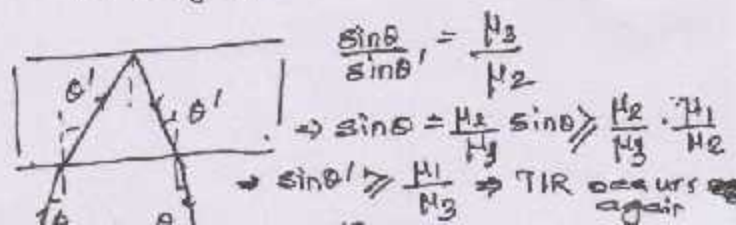 sinθ / sinθ' = μ3 / μ2
θ' θ' ⇒ sinθ = μ2/μ3 sinθ ≥ μ2/μ3 · μ1/μ2
⇒ sinθ' ≥ μ1/μ3 ⇒ TIR occurs again
θ θ